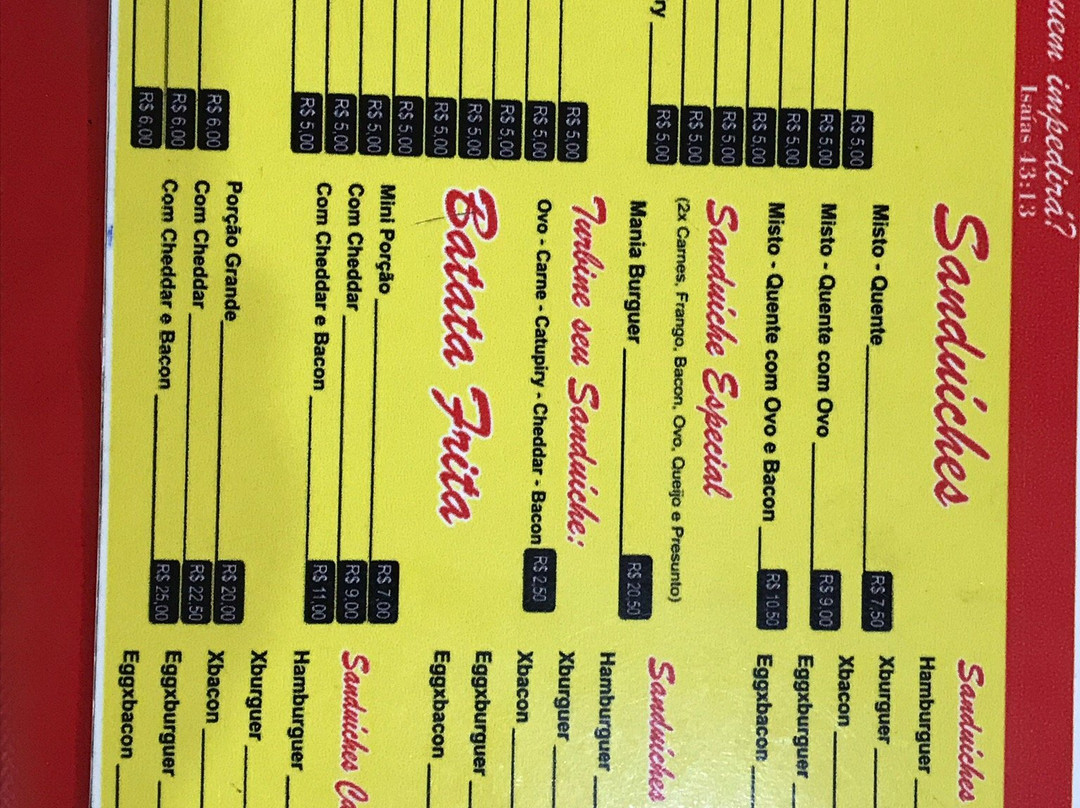 uem impedirá?
Isaías 43:13
R$ 5,00
R$ 5,00
R$ 5,00
R$ 5,00
R$ 5,00
R$ 5,00
ry R$ 5,00
R$ 5,00
R$ 5,00
R$ 5,00
R$ 5,00
R$ 5,00
R$ 5,00
R$ 5,00
R$ 5,00
R$ 5,00
R$ 6,00
R$ 6,00
R$ 6,00
Sanduíches
Misto - Quente R$ 7,50
Misto - Quente com Ovo R$ 9,00
Misto - Quente com Ovo e Bacon R$ 10,50
Sanduíche Especial
(2x Carnes, Frango, Bacon, Ovo, Queijo e Presunto)
Mania Burguer R$ 20,50
Turbine seu Sanduíche:
Ovo - Carne - Catupiry - Cheddar - Bacon R$ 2,50
Batata Frita
Mini Porção R$ 7,00
Com Cheddar R$ 9,00
Com Cheddar e Bacon R$ 11,00
Porção Grande R$ 20,00
Com Cheddar R$ 22,50
Com Cheddar e Bacon R$ 25,00
Sanduíches
Hamburguer
Xburguer
Xbacon
Eggxburguer
Eggxbacon
Sanduíches
Hamburguer
Xburguer
Xbacon
Eggxburguer
Eggxbacon
Sanduíches Ca
Hamburguer
Xburguer
Xbacon
Eggxburguer
Eggxbacon